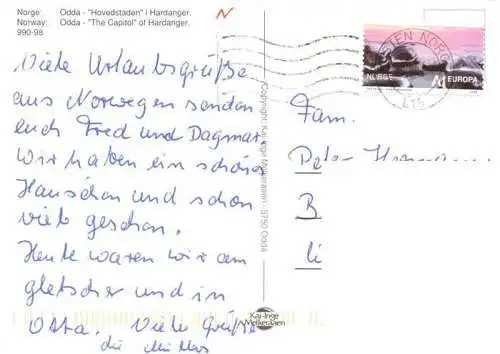 Norge: Odda - "Hovedstaden" i Hardanger.
Norway: Odda - "The Capitol" of Hardanger.
990-98
Viele Urlaubsgrüße
aus Norwegen senden
euch Fred und Dagmar.
Wir haben ein schönes
Häuschen und schon
viele gesehen.
Heute waren wir am
gletscher und in
Odda. Viele Grüße
die
Copyright: Kai-Inge Melkeraaen - 5750 Odda
Kaj-Inge
Melkeraaen
NORGE A EUROPA
Fam.
Peter
B
li